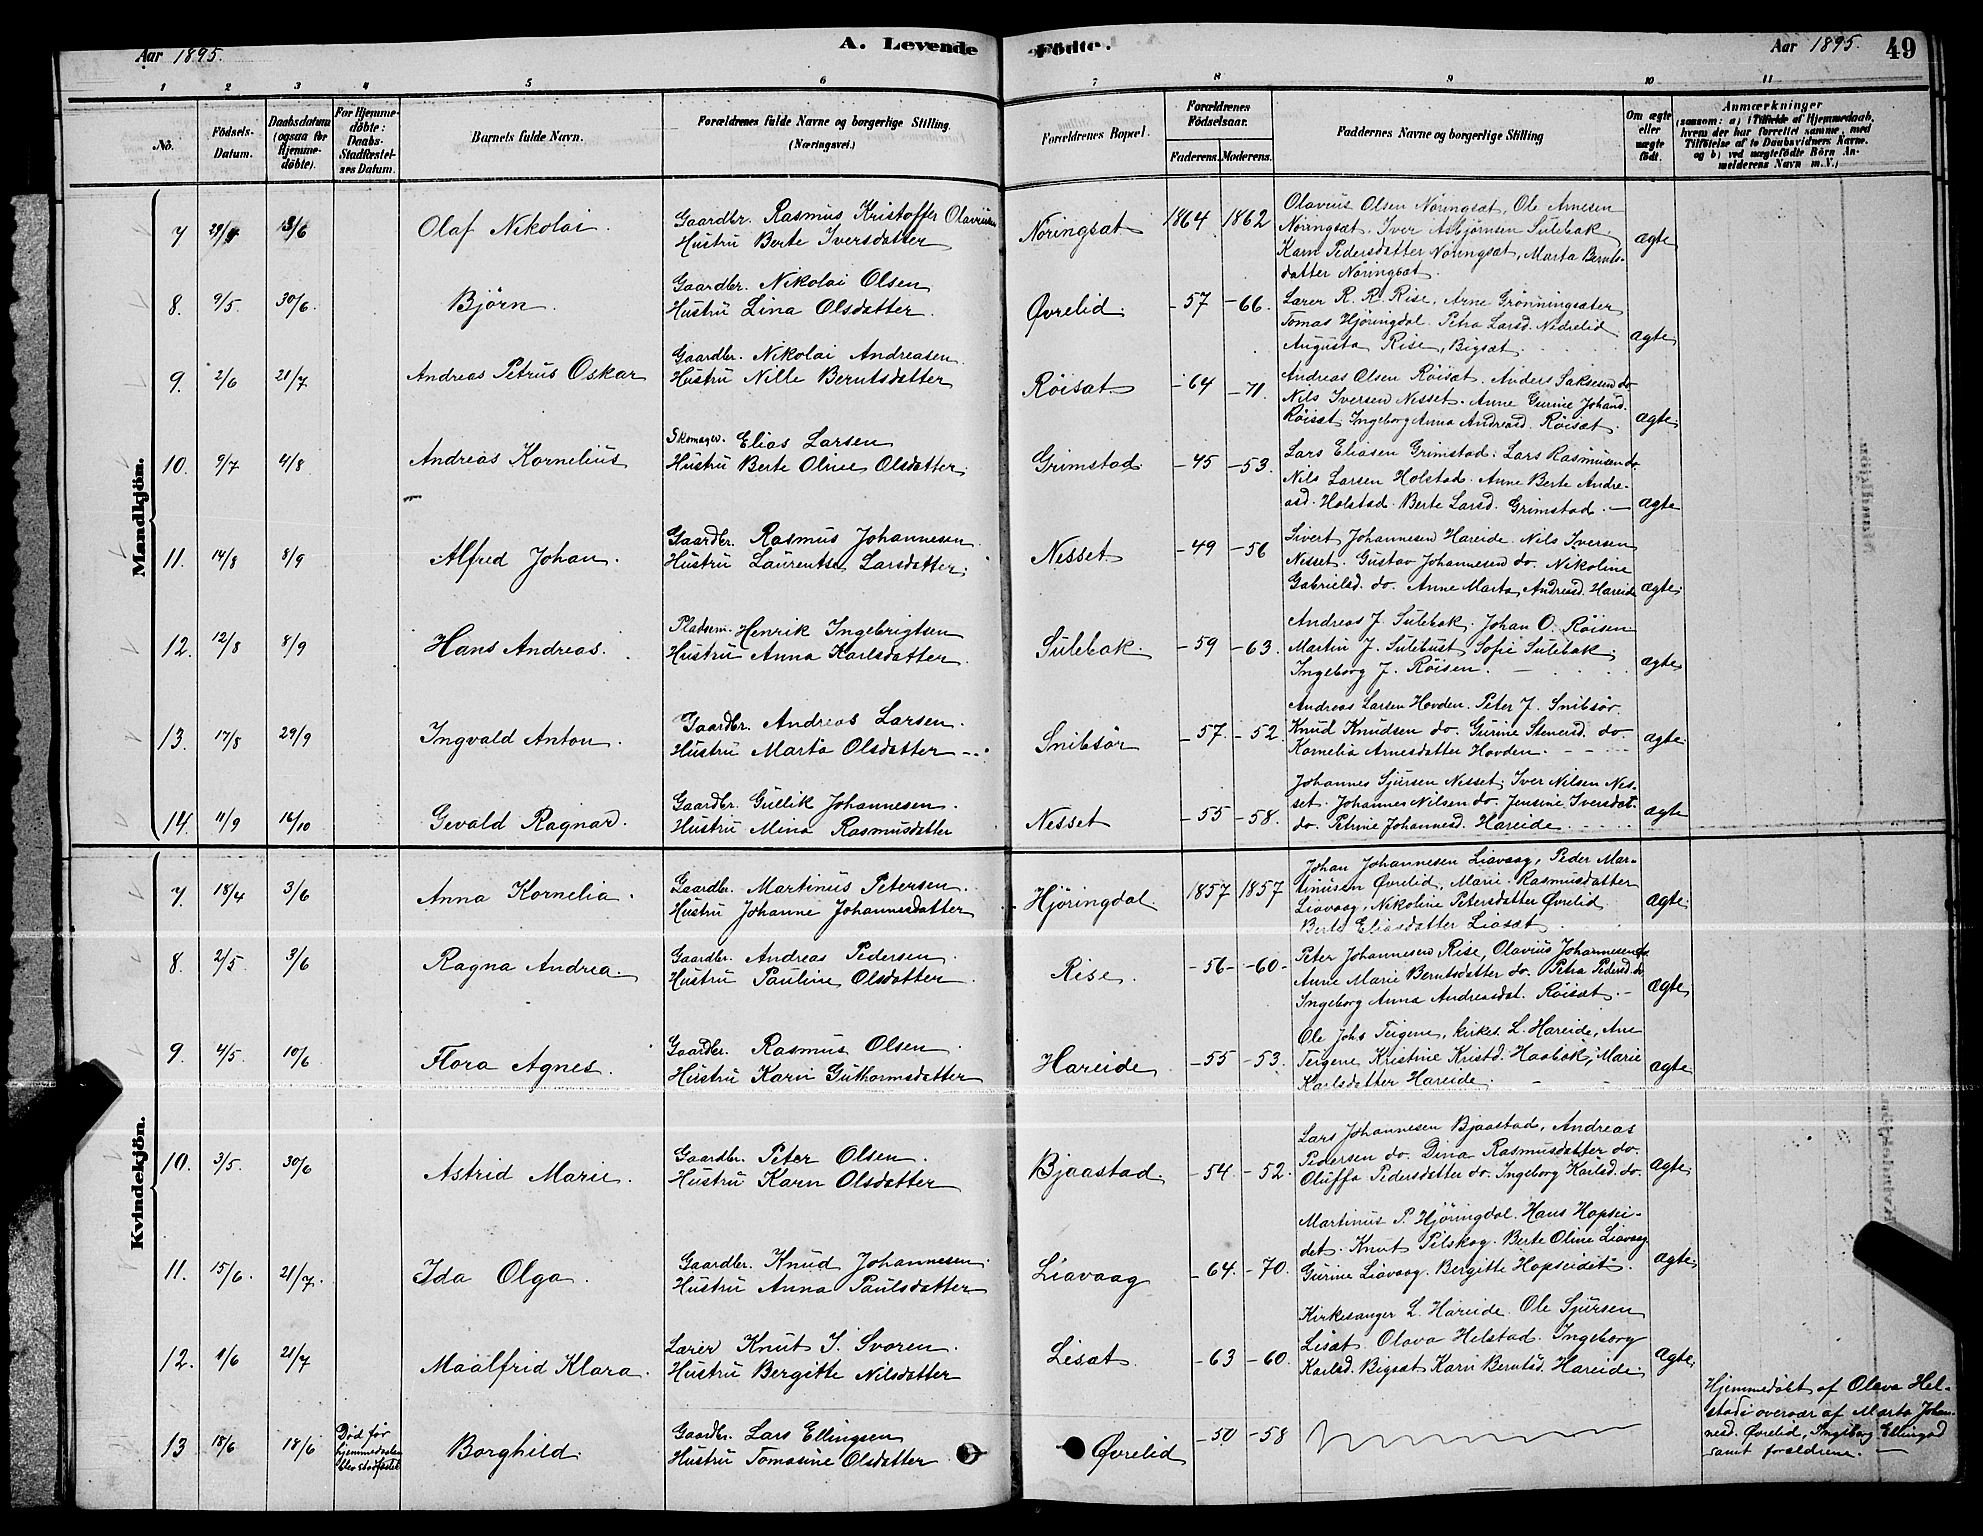 Aar 1895.
A. Levende Födte.
Aar 1895.
49
1 2 3 4 5 6 7 8 9 10 11
No.
Födsels-Datum.
Daabsdatum (ogsaa for Hjemme-döbte).
For Hjemme-döbte: Daabs-Stadfæstel-ses Datum.
Barnets fulde Navn.
Forældrenes fulde Navne og borgerlige Stilling. (Næringsvei.)
Forældrenes Bopæl.
Forældrenes Födselsaar.
Faderens. Moderens.
Faddernes Navne og borgerlige Stilling
Om ægte eller uægte födt.
Anmærkninger
(saasom: a) i Tilfælde af Hjemmedaab, hvem der har forrettet samme, med Tilföielse af to Daabsvidners Navne, og b) ved uægtefödte Börn An-melderens Navn m. V.)
Mandkjön.
7 29/4 3/6 Olaf Nikolai.
Gaardbr. Rasmus Kristoffer Olaviusen
Hustru Berte Iversdatter
Nöringsat 1864 1862
Olavius Olsen Nöringsæt, Ole Arnesen
Nöringsæt. Iver Asbjørnsen Sulebak.
Karn Pedersdatter Nöringsæt, Marta Bernts-
datter Nöringsæt.
ægte
8. 9/5. 30/6. Björn.
Gaardbr. Nikolai Olsen
Hustru Lina Olsdatter.
Øvrelid. -57 -66.
Lærer R. R. Rise, Arne Grönningsæter
Tomas Hjöringdal. Petra Larsd. Nedrelid
Augusta Rise, Bigsæt.
ægte
9. 2/6 21/7 Andreas Petrus Oskar
Gaardbr. Nikolai Andreasen.
Hustru Nille Berntsdatter
Röisæt -64 -71.
Andreas Olsen Röisæt. Anders Saksesen do
Nils Iversen Nesset. Anne Gurine Johansd.
Röisæt. Ingeborg Anna Andreasd. Röisæt.
ægte
10. 9/7 4/8 Andreas Kornelius
Skomager. Elias Larsen
Hustru Berte Oline Olsdatter.
Grimstad. -45 -53.
Lars Eliasen Grimstad. Lars Rasmusen do
Nils Larsen Holstad. Anne Berte Andre-
asd. Holstad. Berte Larsd. Grimstad.
ægte
11. 14/8 8/9 Alfred Johan.
Gaardbr. Rasmus Johannesen.
Hustru Laurentse Larsdatter.
Nesset -49 -56
Sivert Johannesen Hareide. Nils Iversen
Nesset. Gustav Johannesen do. Nikoline
Gabrielsd. do. Anne Marta Andreasd. Hareide
ægte
12. 12/8 8/9 Hans Andreas.
Pladsem. Henrik Ingebrigtsen
Hustru Anna Karlsdatter.
Sulebak. -59 -63.
Andreas J. Sulebak. Johan O. Röisen
Martin J. Sulebust Sofie Sulebak.
Ingeborg J. Röisen.
ægte
13. 17/8 29/9 Ingvald Anton.
Gaardbr. Andreas Larsen.
Hustru Marta Olsdatter
Snibsör -57. -52.
Andreas Larsen Hovden. Peter J. Snibsör.
Knud Knudsen do. Gurine Stenersd. do.
Kornelia Arnesdatter Hovden.
ægte
14. 11/9 16/10 Gevald Ragnar.
Gaardbr. Gullik Johannesen.
Hustru Mina Rasmusdatter
Nesset -55 -58.
Johannes Sjursen Nesset. Iver Nilsen Nes-
set. Johannes Nilsen do. Jensine Iversdat.
do. Petrine Johannesd. Hareide.
ægte
Kvindekjön.
7. 18/4 3/6 Anna Kornelia.
Gaardbr. Martinus Petersen.
Hustru Johanne Johannesdatter
Hjöringdal. 1857 1857
Johan Johannesen Liavaag, Peder Mar-
tinusen Øvrelid, Marie Rasmusdatter
Liavaag, Nikoline Petersdatter Øvrelid
Berte Eliasdatter Liasæt.
ægte
8. 2/5. 3/6 Ragna Andrea.
Gaardbr. Andreas Pedersen.
Hustru Pauline Olsdatter.
Rise. -56- -60-
Peter Johannesen Rise, Olavius Johannesen do
Anne Marie Berntsdatter do. Petra Pedersd. do
Ingeborg Anna Andreasdat. Röisæt.
ægte
9. 4/5. 10/6 Flora Agnes.
Gaardbr. Rasmus Olsen.
Hustru Karn Guthormsdatter
Hareide -55 -53.
Ole Johs Teigene, kirkes. L. Hareide, Ane
Teigene Kristine Kristd. Haabak, Marie
Karlsdatter Hareide.
ægte
10. 3/5. 30/6 Astrid Marie.
Gaardbr. Peter Olsen.
Hustru Karn Olsdatter
Bjaastad. -54. -52.
Lars Johannesen Bjaastad, Andreas
Pedersen do. Dina Rasmusdatter do.
Oluffa Pedersdatter do. Ingeborg Karlsd. do.
ægte
11. 15/6. 21/7. Ida Olga.
Gaardbr. Knud Johannesen.
Hustru Anna Paulsdatter
Liavaag -64. -70.
Martinus P. Hjöringdal. Hans Hopsei-
det. Knut Pilskog. Berte Oline Liavaag
Gurine Liavaag. Bergitte Hopseidet.
ægte
12. 1/6 21/7 Maalfrid Klara.
Lærer Knut I. Svoren.
Hustru Bergitte Nilsdatter
Lisæt. -63 -60.
Kirkesanger L. Hareide. Ole Sjursen
Lisæt Olava Helstad. Ingeborg
Karlsd. Bigsæt Karn Berntsd. Hareide.
ægte
13 18/6 18/6 Död før hjemmedaaben blev stadfæstet
Borghild.
Gaardbr. Lars Ellingsen
Hustru Tomasine Olsdatter
Øvrelid -50 -58
Hjemmedöbt af Olava Hel-
stad i overvær af Marta Johan-
nesd. Øvrelid, Ingeborg Ellingsd
samt forældrene.